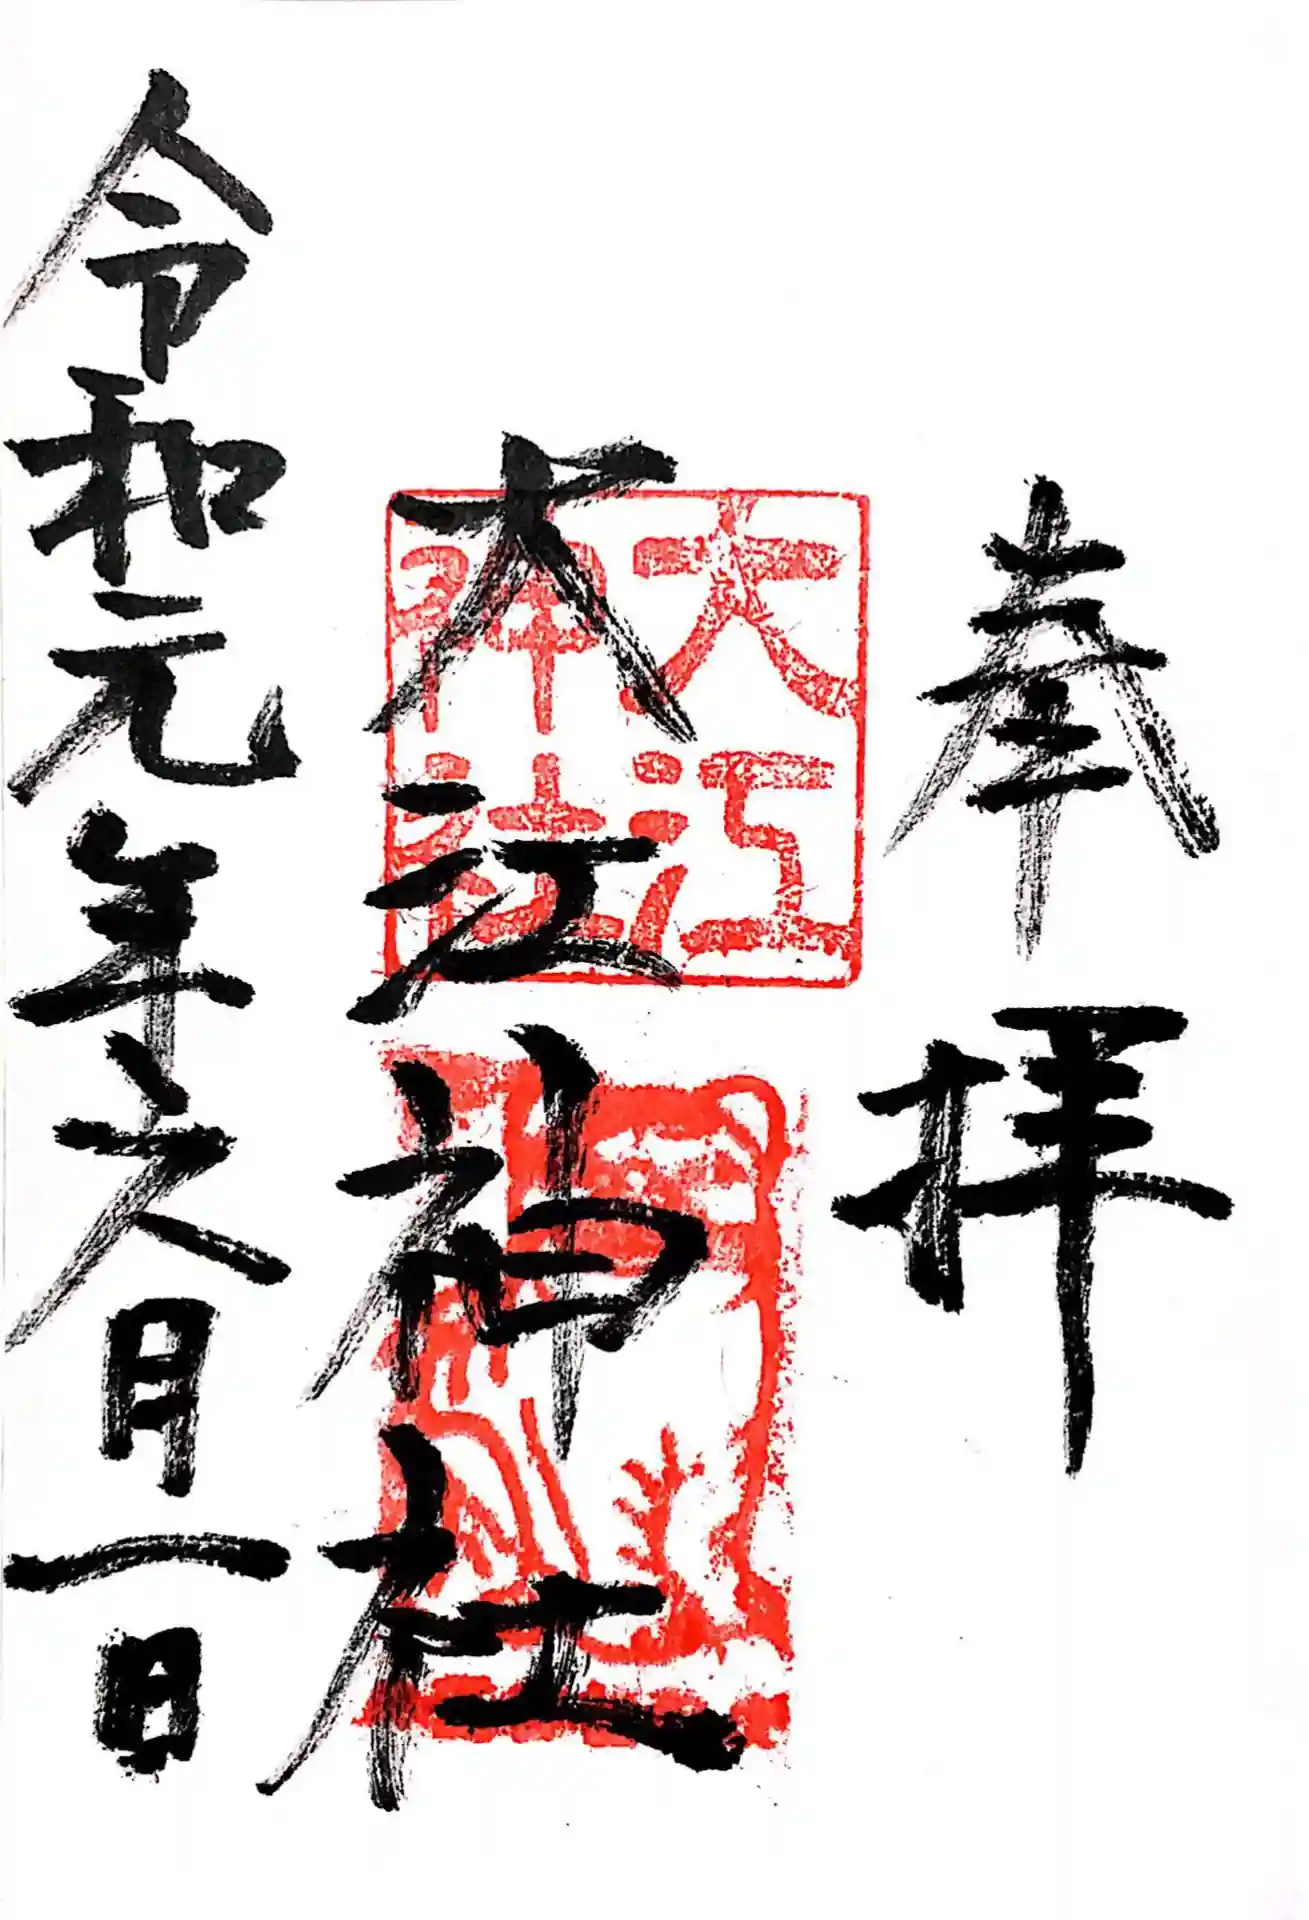 奉拝
大江神社
大江神社
令和元年六月一日